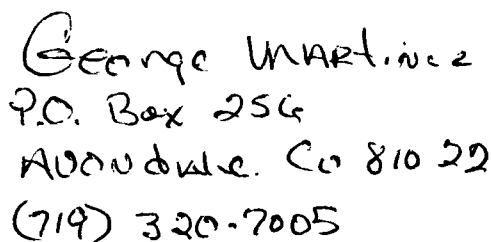 George Martinez
P.O. Box 256
Avondale. Co 81022
(719) 320-7005